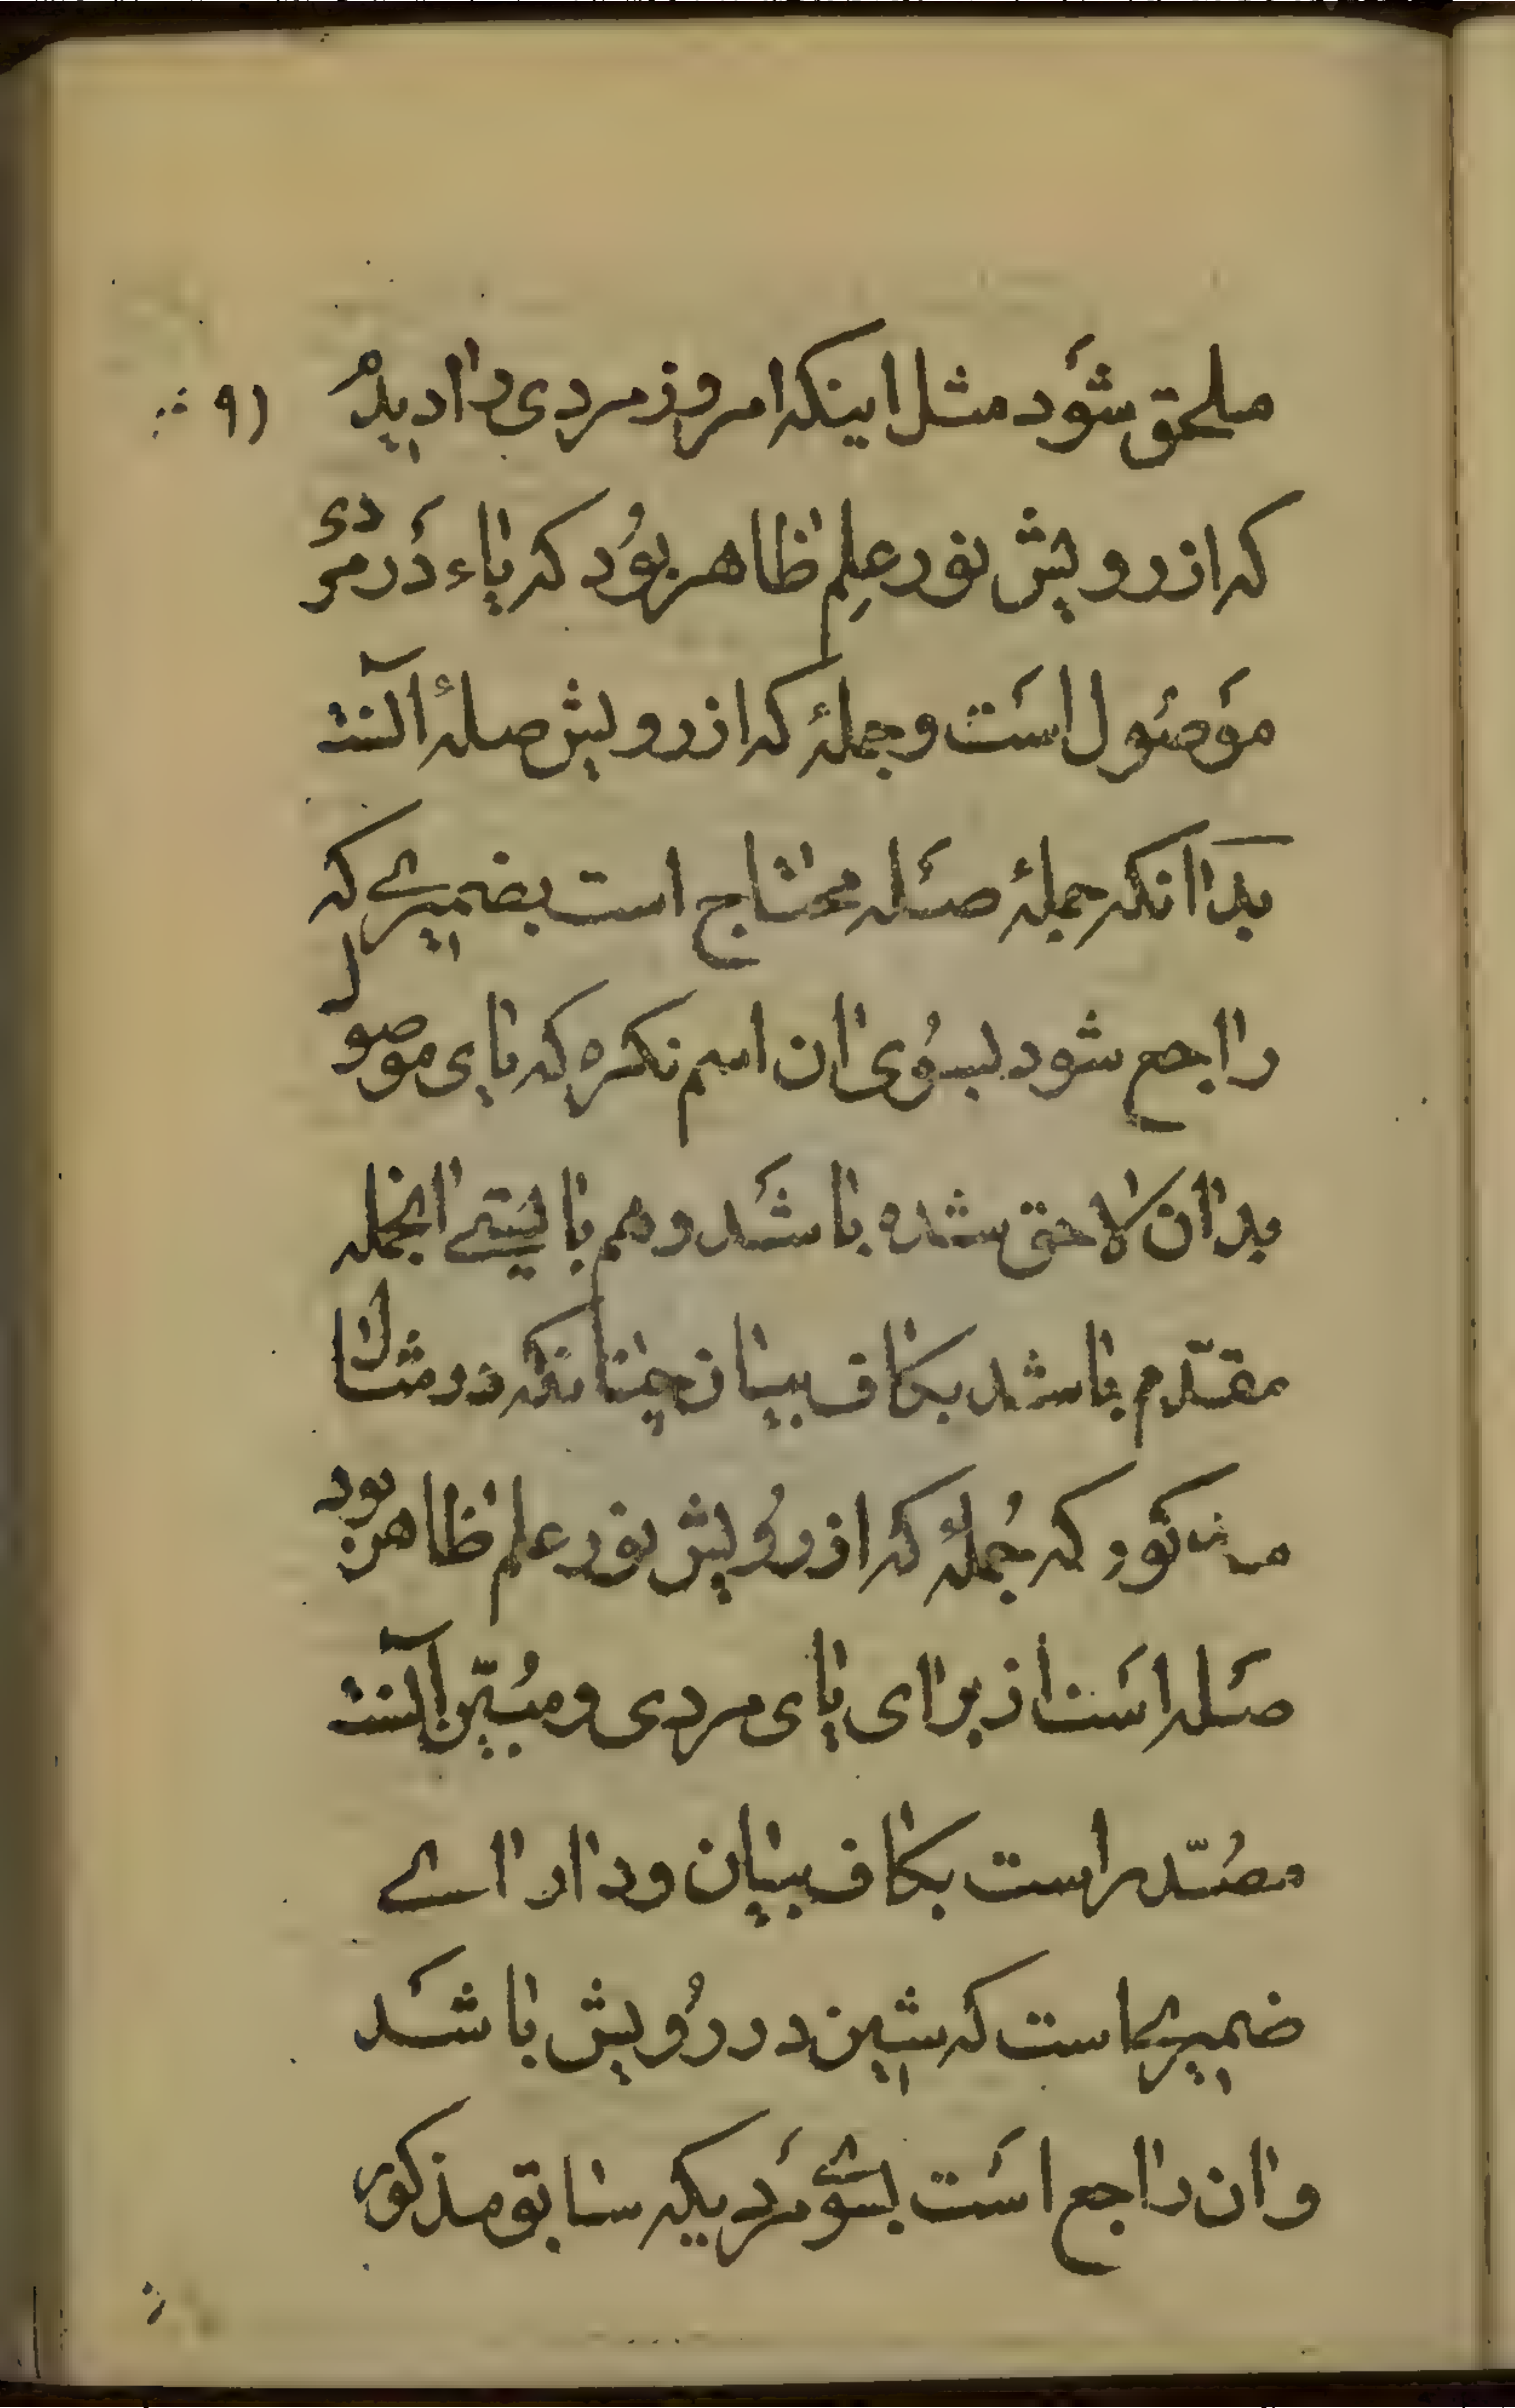 ملحق شَود مثل اینکه امروز مردی را دیدم
۹۱
که از رویش نور علِم ظاهر بوُد که یاء دَر مردی
مَوصَول اسَت و جملهٔ که از رویش صلهٔ آنست
بدَانکه جملهٔ صَله محتاج است بضمیرے که
راجع شود بسوُی ان اسم نکره که یای موصول
بدان لاحق شده باشَد و هم بایستے انجمله
مقدّم باشد بکاف بیان چنانکه در مثال
مذکور که جُملهٔ که از روُیش نور علم ظاهر بود
صَله اسَت از برای یای مردی و مبُیّن آنست
مصُدّر است بکاف بیان و دارای
ضمیریست که شین در روُیش باشَد
و ان راجع اسَت بسوے مَردیکه سابق مذکور